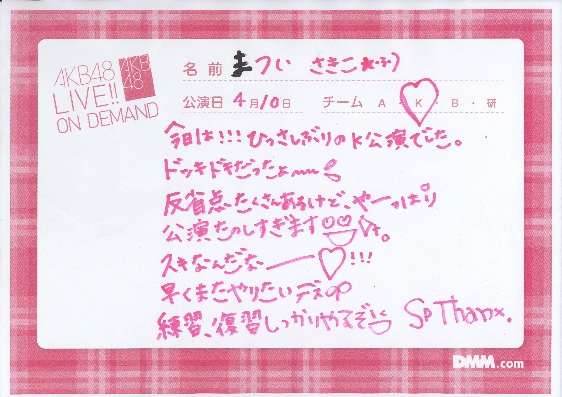 AKB48
LIVE!!
ON DEMAND
AKB
48
名前 まつい さきこ
公演日 4月10日 チーム A・K・B・研
今日は!!!ひっさしぶりのK公演でした。
ドッキドキだったよ〜〜!
反省点、たくさんあるけど、やーっぱり
公演たのしすぎます
スキなんだなー♡!!!
早くまたやりたいデス
練習、復習しっかりやるぞ
Sp Thanx.
DMM.com